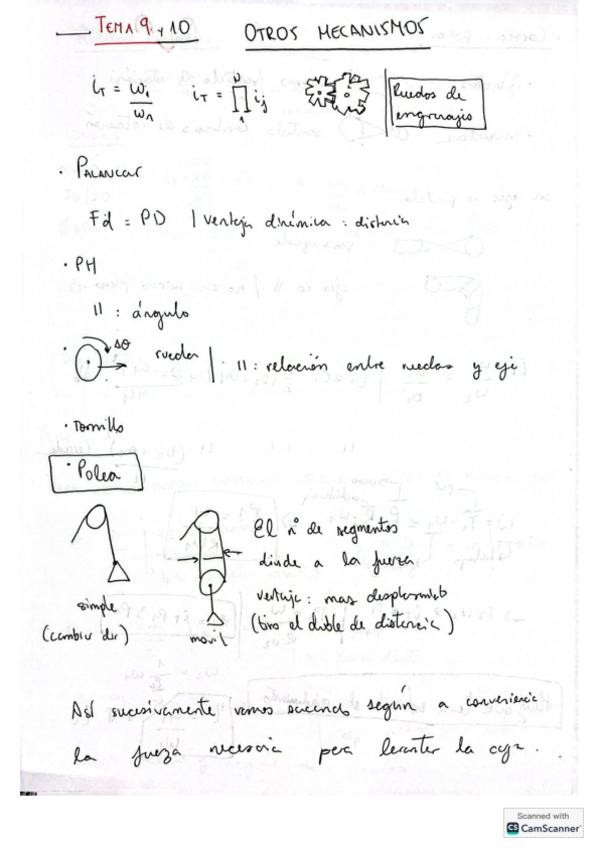 TEMA 9 y 10 OTROS MECANISMOS
i_T = ω₁/ωₙ i_T = ∏ i_j Ruedas de
engranajes
· PALANCAS
Fd = PD | ventaja dinámica : distancia
· PH
11 : ángulo
· Δθ ruedas | 11 : relación entre ruedas y eje
· Tornillo
· Polea
El nº de segmentos
divide a la fuerza
ventaja : mas desplazamiento
(tiro el doble de distancia)
simple
(cambiar dir)
movil
Así sucesivamente vamos sacando según a conveniencia
la fuerza necesaria para levantar la caja.
Scanned with
CS CamScanner